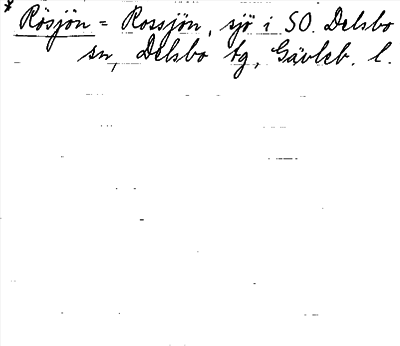 * Rösjön = Rossjön, sjö i SO. Delsbo
sn, Delsbo tg, Gävleb. l.